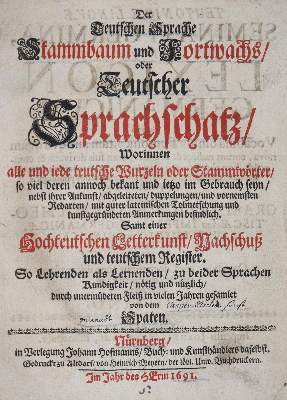 Der
Teutschen Sprache
Stammbaum und Fortwachs/
oder
Teutscher
Sprachschatz/
Worinnen
alle und iede teutsche Wurzeln oder Stammwörter/
so viel deren annoch bekant und ietzo im Gebrauch seyn/
nebst ihrer Ankunft/ abgeleiteten/ duppelungen/ und vornemsten
Redarten/ mit guter lateinischen Tolmetschung und
kunstgegründeten Anmerkungen befindlich.
Samt einer
Hochteutschen Letterkunst/ Nachschuß
und teutschem Register.
So Lehrenden als Lernenden/ zu beider Sprachen
Kundigkeit/ nötig und nützlich/
durch unermüdeten Fleiß in vielen Jahren gesamlet
von dem
Spaten.
Nürnberg/
in Verlegung Johann Hofmanns/ Buch- und Kunsthändlers daselbst.
Gedruckt zu Altdorf/ von Heinrich Meyern/ der Löbl. Univ. Buchdruckern.
Im Jahr des HErrn 1691.